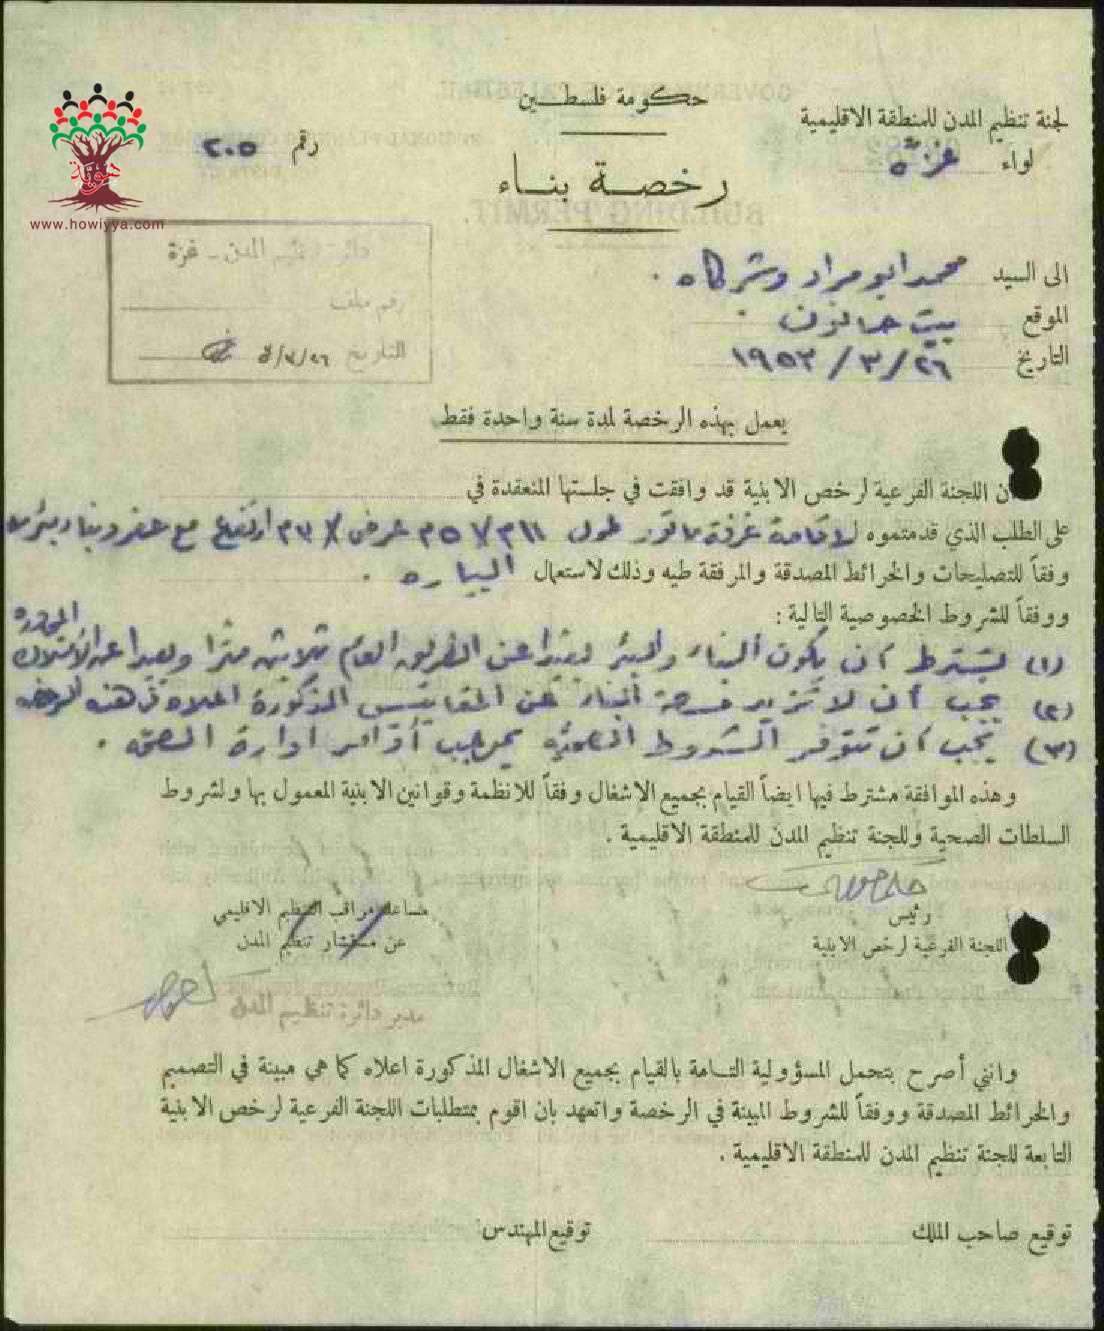 حكومة فلسطين
لجنة تنظيم المدن للمنطقة الاقليمية
لواء غزة
رقم ٢٠٥
رخصة بناء
هوية
www.howiyya.com
دائرة تنظيم المدن - غزة
رقم ملف
التاريخ ٢٦/٣/
الى السيد محمد ابو مراد وشركاه .
الموقع بيت حانون
التاريخ ٢٦/٣/١٩٥٣
يعمل بهذه الرخصة لمدة سنة واحدة فقط
ان اللجنة الفرعية لرخص الابنية قد وافقت في جلستها المنعقدة في
على الطلب الذي قدمتموه لاقامة غرفة ماتور طول عرض ارتفاع مع حفر وبناء بئر
وفقاً للتصليحات والخرائط المصدقة والمرفقة طيه وذلك لاستعمال البياره .
ووفقاً للشروط الخصوصية التالية :
(١) يشترط ان يكون البناء والبئر بعيدا عن الطريق العام ثلاثين مترا وبعيدا عن الأملاك المجاوره
(٢) يجب ان لا تزيد مساحة البناء عن المقاييس المذكورة اعلاه في هذه الرخصه
(٣) يجب ان تتوفر الشروط الصحيه بموجب أوامر ادارة الصحه .
وهذه الموافقة مشترط فيها ايضاً القيام بجميع الاشغال وفقاً للانظمة وقوانين الابنية المعمول بها ولشروط
السلطات الصحية وللجنة تنظيم المدن للمنطقة الاقليمية .
رئيس
اللجنة الفرعية لرخص الابنية
مساعد مراقب التنظيم الاقليمي
عن مستشار تنظيم المدن
مدير دائرة تنظيم المدن
وانني أصرح بتحمل المسؤولية التامة بالقيام بجميع الاشغال المذكورة اعلاه كما هي مبينة في التصميم
والخرائط المصدقة ووفقاً للشروط المبينة في الرخصة واتعهد بان اقوم بمتطلبات اللجنة الفرعية لرخص الابنية
التابعة للجنة تنظيم المدن للمنطقة الاقليمية .
توقيع صاحب الملك
توقيع المهندس